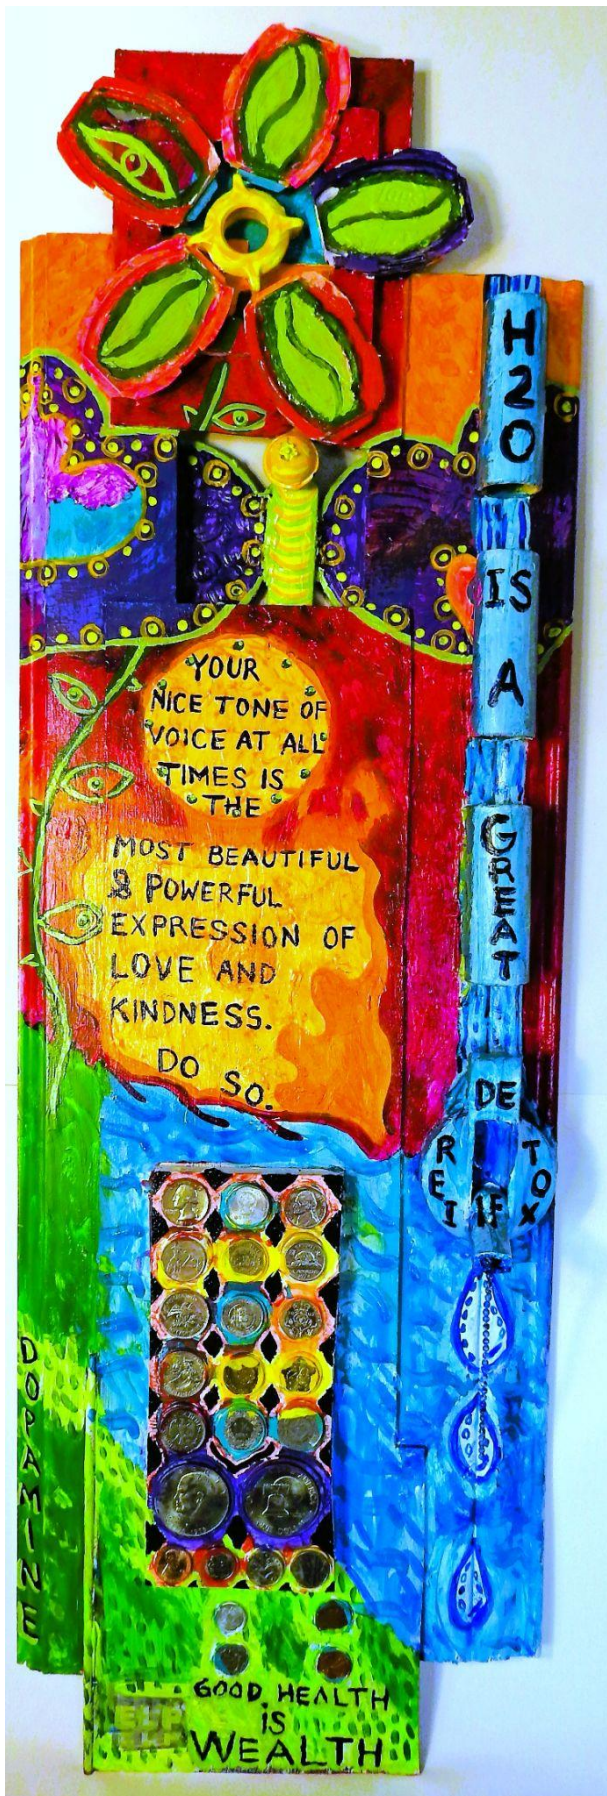 H2O
IS
A
GREAT
DE
TOX
IF
REI
YOUR
NICE TONE OF
VOICE AT ALL
TIMES IS
THE
MOST BEAUTIFUL
& POWERFUL
EXPRESSION OF
LOVE AND
KINDNESS.
DO SO.
DOPAMINE
GOOD HEALTH
IS
WEALTH